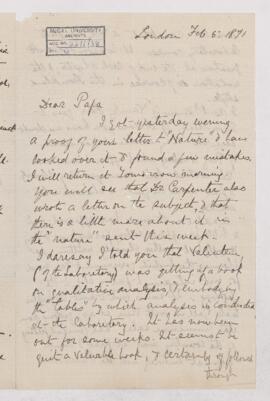 McGILL UNIVERSITY
ARCHIVES
ACC. NO.
London Feb 6th 1871
Dear Papa
I got yesterday evening
a proof of your letter to "Nature" & have
looked over it & found a few mistakes.
I will return it tomorrow morning
You will see that Dr Carpenter also
wrote a letter on the subject, & that
there is a little more about it in
the "nature" sent this week.
I daresay I told you that Valentin
(of the Laboratory) was getting up a book
on qualitative analysis, & embodying
the "Tables" by which analysis is conducted
at the laboratory. It has now been
out for some weeks. It cannot be
quite a valuable book, & certainly if followed
through